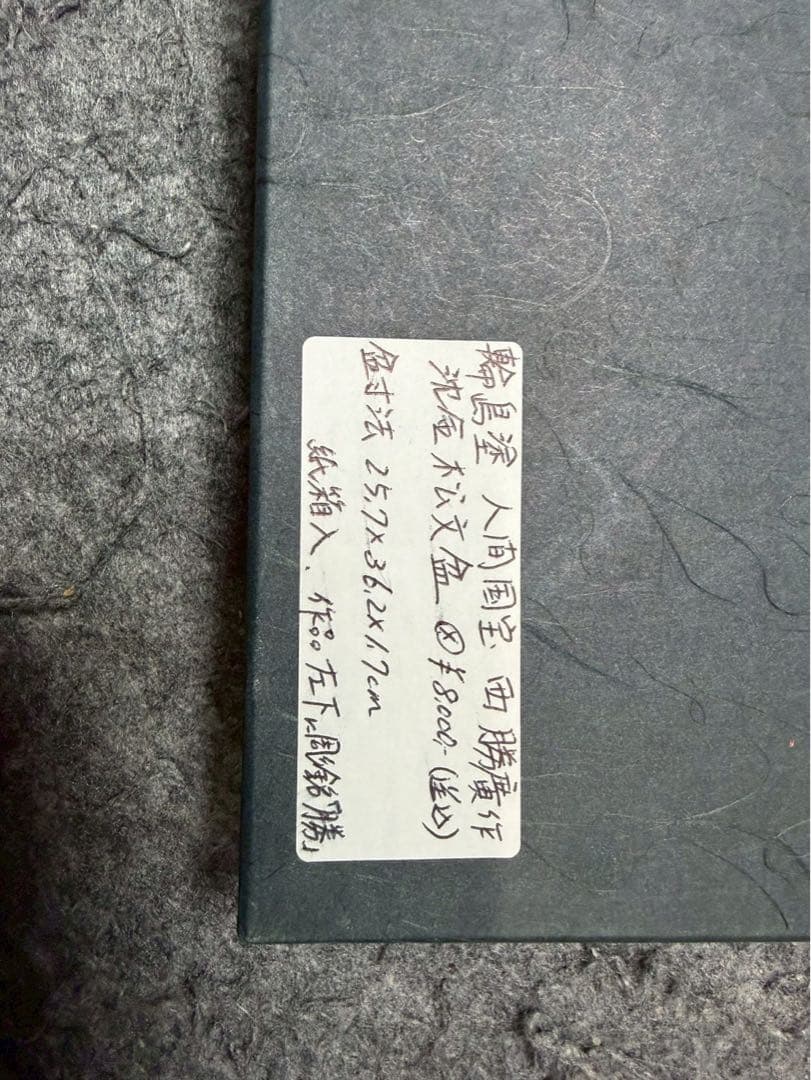 輪島塗 人間国宝 西勝廣作
沈金松文盆 ⊗¥8,000-(送込)
盆寸法 25,7×36,2×1,7cm
紙箱入、作品左下に彫銘「勝」